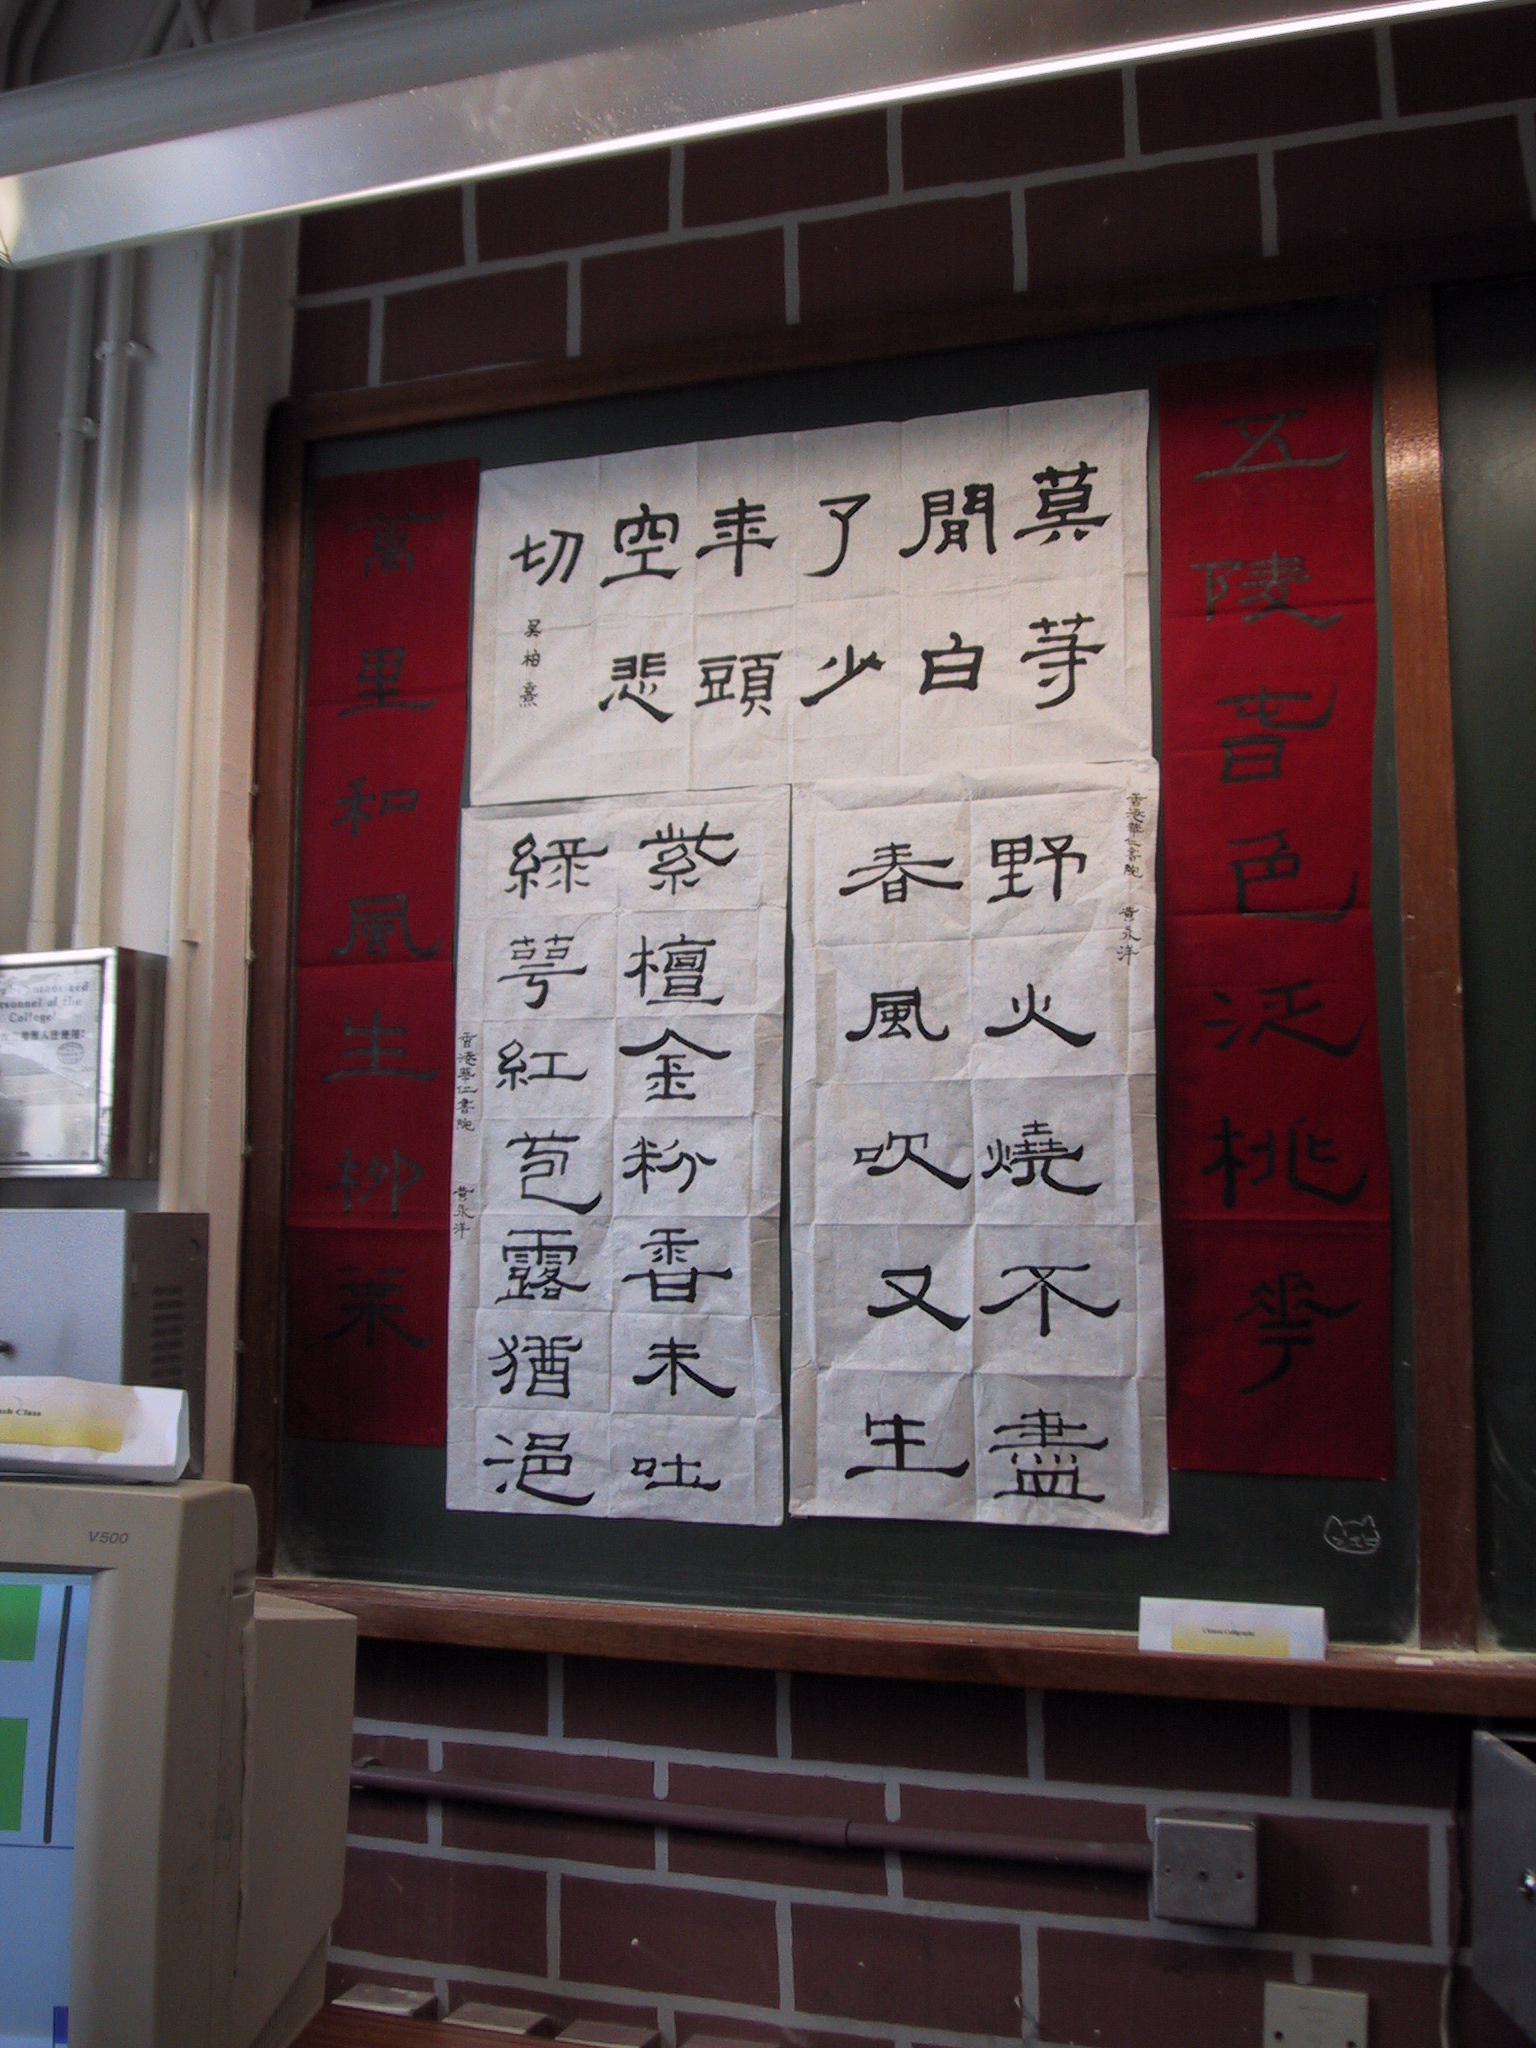 五陵春色泛桃花
莫等
閒白
了少
年頭
空悲
切
吴柏熹
香港華仁書院 黄永洋
野火燒不盡
春風吹又生
紫檀金粉香未吐
綠萼紅苞露猶浥
香港華仁書院 黄永洋
萬里和風生柳葉
College!
V500
Chinese Calligraphy